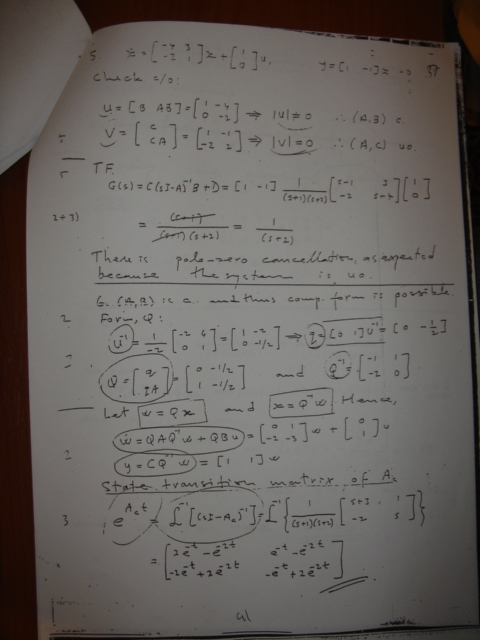 5. ẋ = [-4 3; -2 1] x + [1; 0] u, y = [1 -1] x
Check c/o:
U = [B AB] = [1 -4; 0 -2] ⇒ |U| ≠ 0 ∴ (A,B) c.
V = [C; CA] = [1 -1; -2 2] ⇒ |V| = 0 ∴ (A,C) uo.
5 TF.
G(s) = C(sI-A)⁻¹B + D = [1 -1] 1/((s+1)(s+2)) [s-1 3; -2 s-4] [1; 0]
2+3) = (s+1)/((s+1)(s+2)) = 1/(s+2)
There is pole-zero cancellation, as expected
because the system is uo.
(A,B) is c. and thus comp. form is possible.
2 Form, Q:
U⁻¹ = 1/-2 [-2 4; 0 1] = [1 -2; 0 -1/2] ⇒ q = [0 1]U⁻¹ = [0 -1/2]
Q = [q; qA] = [0 -1/2; 1 -1/2] and Q⁻¹ = [-1 1; -2 0]
Let w = Qx and x = Q⁻¹w Hence,
ẇ = QAQ⁻¹w + QBu = [0 1; -2 -3] w + [0; 1] u
2 y = CQ⁻¹w = [1 1] w
State transition matrix of Ac
3 e^(Ac t) = L⁻¹[(sI-Ac)⁻¹] = L⁻¹{1/((s+1)(s+2)) [s+3 1; -2 s]}
= [2e^-t - e^-2t e^-t - e^-2t; -2e^-t + 2e^-2t -e^-t + 2e^-2t]